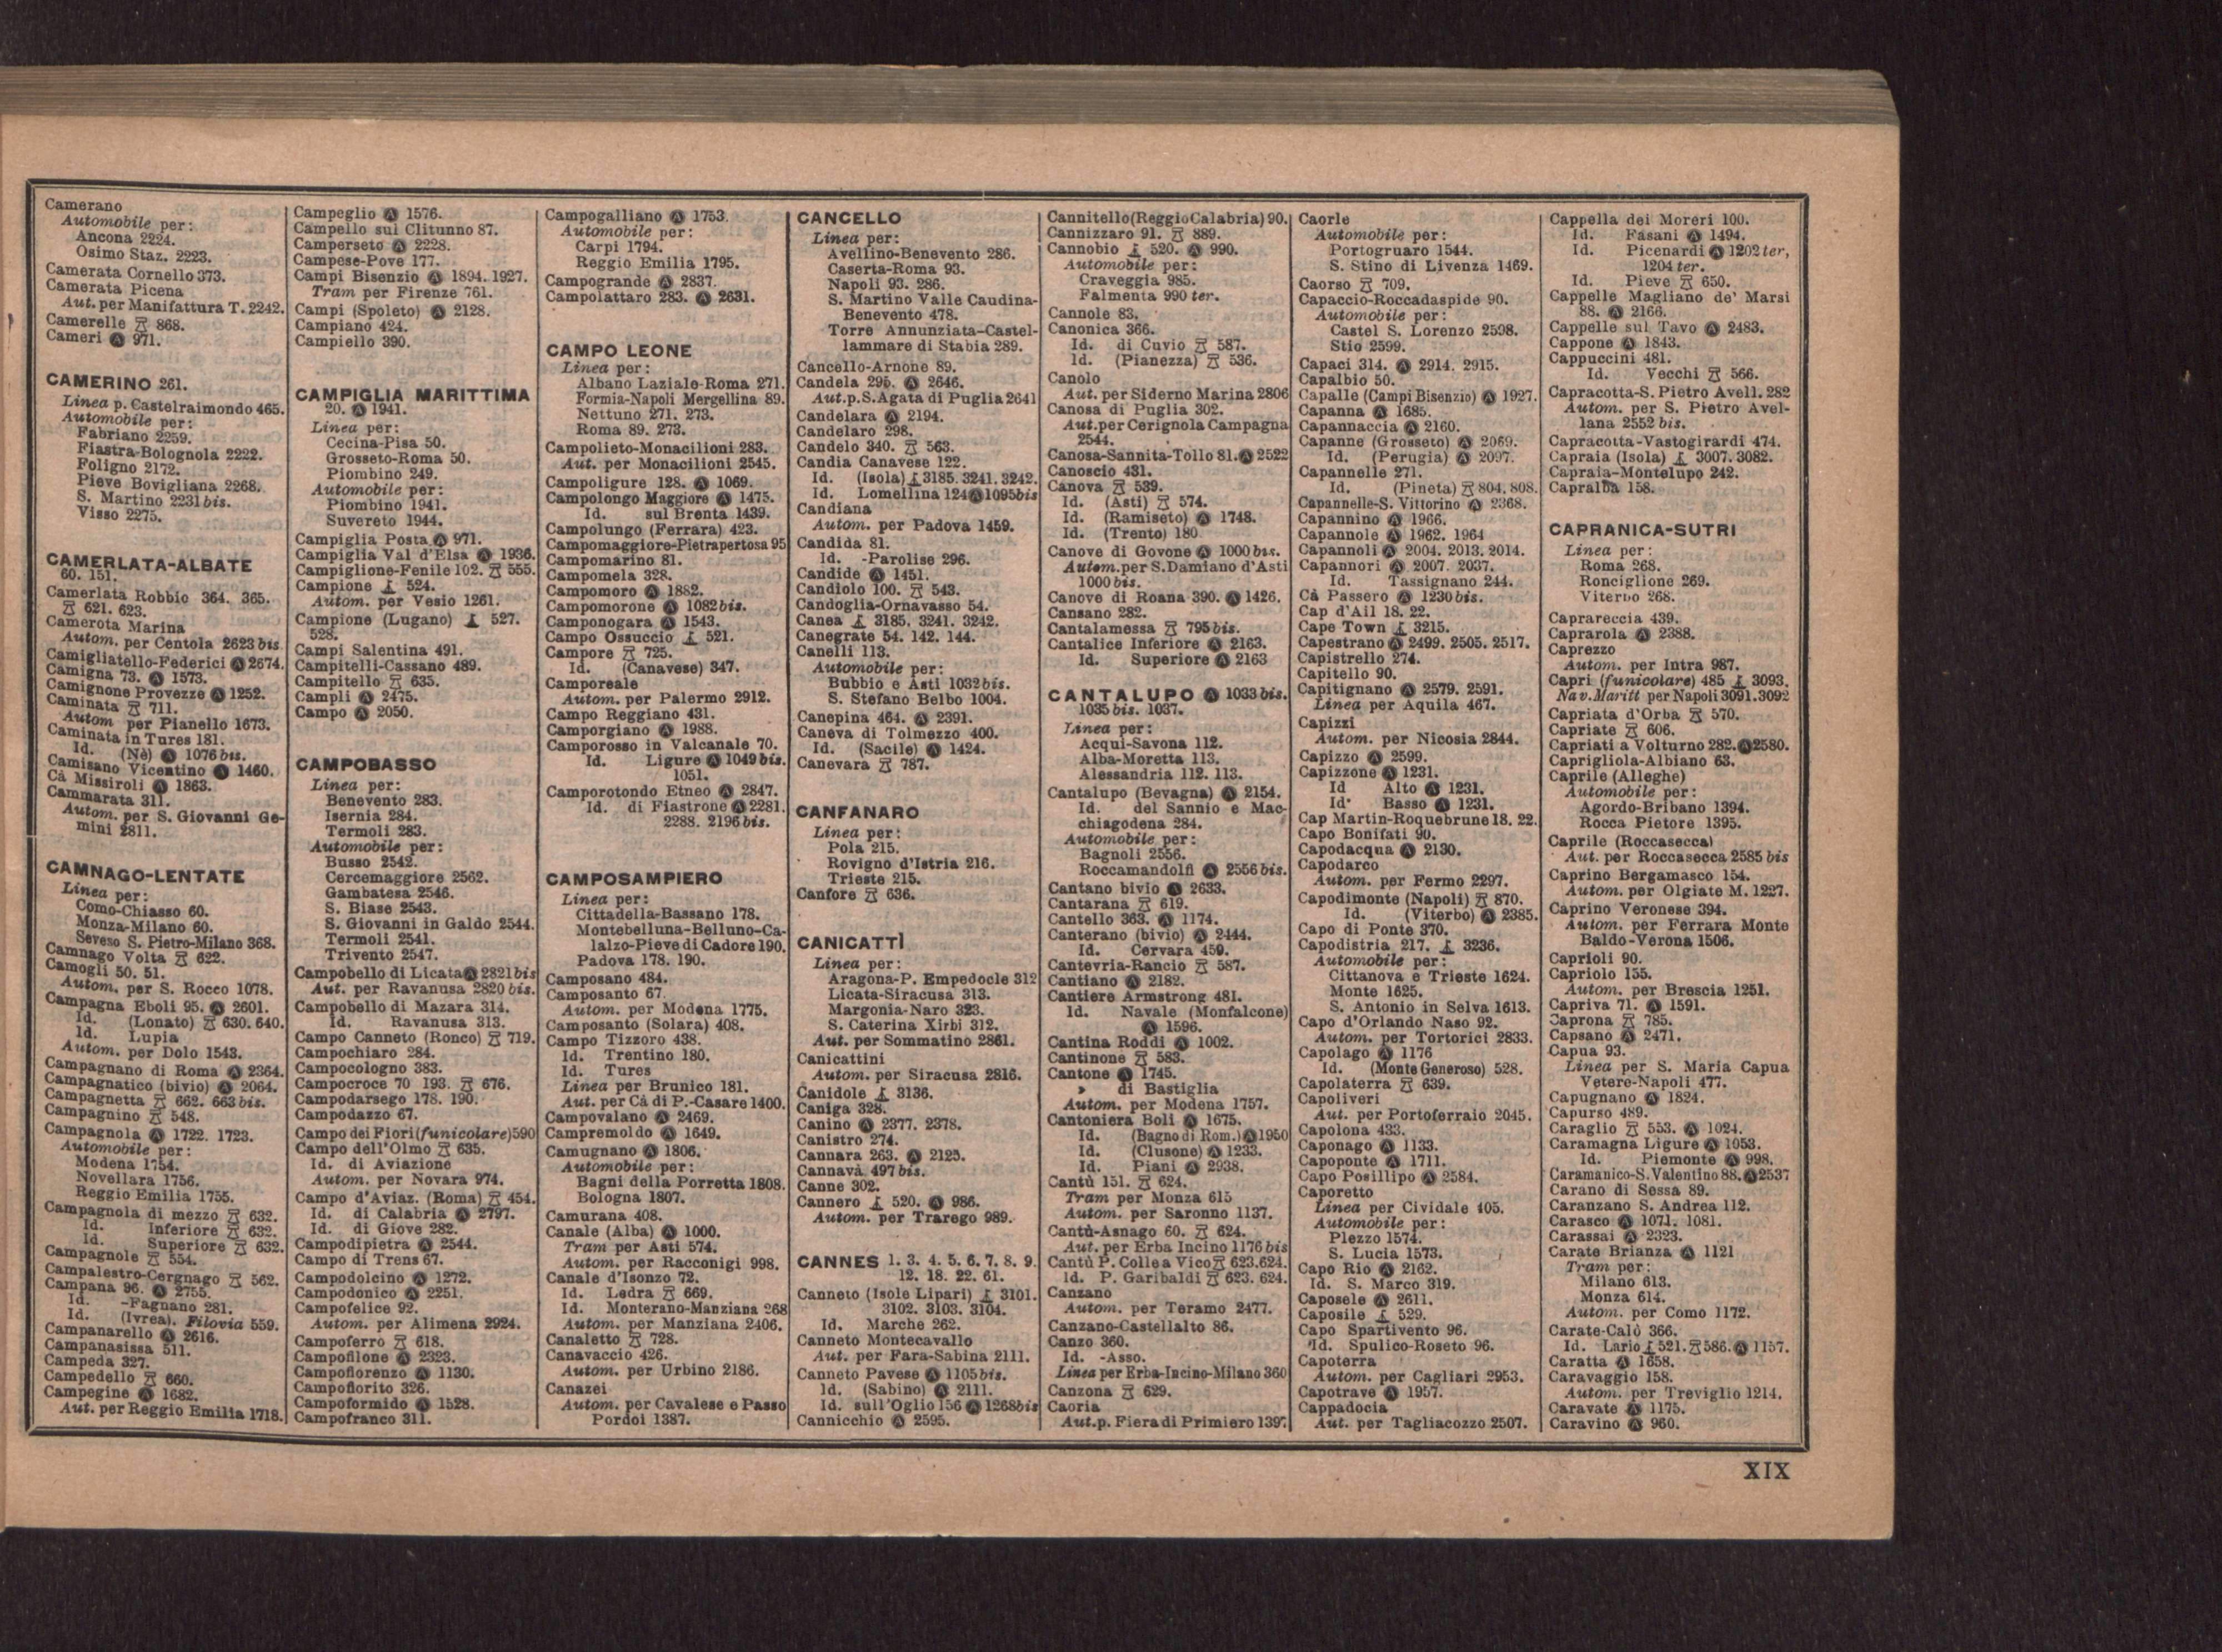 Camerano
Automobile per:
Ancona 2224.
Osimo Staz. 2223.
Camerata Cornello 373.
Camerata Picena
Aut. per Manifattura T. 2242.
Camerelle 868.
Cameri Ⓐ 971.
CAMERINO 261.
Linea p. Castelraimondo 465.
Automobile per:
Fabriano 2259.
Fiastra-Bolognola 2222.
Foligno 2172.
Pieve Bovigliana 2268.
S. Martino 2231 bis.
Visso 2275.
CAMERLATA-ALBATE
60. 151.
Camerlata Robbio 364. 365.
621. 623.
Camerota Marina
Autom. per Centola 2623 bis
Camigliatello-Federici Ⓐ 2674.
Camigna 73. Ⓐ 1573.
Camignone Provezze Ⓐ 1252.
Caminata 711.
Autom per Pianello 1673.
Caminata in Tures 181.
Id. (Nè) Ⓐ 1076 bis.
Camisano Vicentino Ⓐ 1460.
Cà Missiroli Ⓐ 1863.
Cammarata 311.
Autom. per S. Giovanni Ge-
mini 2811.
CAMNAGO-LENTATE
Linea per:
Como-Chiasso 60.
Monza-Milano 60.
Seveso S. Pietro-Milano 368.
Camnago Volta 622.
Camogli 50. 51.
Autom. per S. Rocco 1078.
Campagna Eboli 95. Ⓐ 2601.
Id. (Lonato) 630. 640.
Id. Lupia
Autom. per Dolo 1543.
Campagnano di Roma Ⓐ 2364.
Campagnatico (bivio) Ⓐ 2064.
Campagnetta 662. 663 bis.
Campagnino 548.
Campagnola Ⓐ 1722. 1723.
Automobile per:
Modena 1754.
Novellara 1756.
Reggio Emilia 1755.
Campagnola di mezzo 632.
Id. Inferiore 632.
Id. Superiore 632.
Campagnole 554.
Campalestro-Cergnago 562.
Campana 96. Ⓐ 2755.
Id. -Fagnano 281.
Id. (Ivrea). Filovia 559.
Campanarello Ⓐ 2616.
Campanasissa 511.
Campeda 327.
Campedello 660.
Campegine Ⓐ 1682.
Aut. per Reggio Emilia 1718.
Campeglio Ⓐ 1576.
Campello sul Clitunno 87.
Camperseto Ⓐ 2228.
Campese-Pove 177.
Campi Bisenzio Ⓐ 1894. 1927.
Tram per Firenze 761.
Campi (Spoleto) Ⓐ 2128.
Campiano 424.
Campiello 390.
CAMPIGLIA MARITTIMA
20. Ⓐ 1941.
Linea per:
Cecina-Pisa 50.
Grosseto-Roma 50.
Piombino 249.
Automobile per:
Piombino 1941.
Suvereto 1944.
Campiglia Posta Ⓐ 971.
Campiglia Val d'Elsa Ⓐ 1936.
Campiglione-Fenile 102. 555.
Campione 524.
Autom. per Vesio 1261.
Campione (Lugano) 527.
528.
Campi Salentina 491.
Campitelli-Cassano 489.
Campitello 635.
Campli Ⓐ 2475.
Campo Ⓐ 2050.
CAMPOBASSO
Linea per:
Benevento 283.
Isernia 284.
Termoli 283.
Automobile per:
Busso 2542.
Cercemaggiore 2562.
Gambatesa 2546.
S. Biase 2543.
S. Giovanni in Galdo 2544.
Termoli 2541.
Trivento 2547.
Campobello di Licata Ⓐ 2821 bis
Aut. per Ravanusa 2820 bis.
Campobello di Mazara 314.
Id. Ravanusa 313.
Campo Canneto (Ronco) 719.
Campochiaro 284.
Campocologno 383.
Campocroce 70 193. 676.
Campodarsego 178. 190.
Campodazzo 67.
Campo dei Fiori (funicolare) 590
Campo dell'Olmo 635.
Id. di Aviazione
Autom. per Novara 974.
Campo d'Aviaz. (Roma) 454.
Id. di Calabria Ⓐ 2797.
Id. di Giove 282.
Campodipietra Ⓐ 2544.
Campo di Trens 67.
Campodolcino Ⓐ 1272.
Campodonico Ⓐ 2251.
Campofelice 92.
Autom. per Alimena 2924.
Campoferro 618.
Campofilone Ⓐ 2323.
Campoflorenzo Ⓐ 1130.
Campoflorito 326.
Campoformido Ⓐ 1528.
Campofranco 311.
Campogalliano Ⓐ 1753.
Automobile per:
Carpi 1794.
Reggio Emilia 1795.
Campogrande Ⓐ 2837.
Campolattaro 283. Ⓐ 2631.
CAMPO LEONE
Linea per:
Albano Laziale-Roma 271.
Formia-Napoli Mergellina 89.
Nettuno 271. 273.
Roma 89. 273.
Campolieto-Monacilioni 283.
Aut. per Monacilioni 2545.
Campoligure 128. Ⓐ 1069.
Campolongo Maggiore Ⓐ 1475.
Id. sul Brenta 1439.
Campolungo (Ferrara) 423.
Campomaggiore-Pietrapertosa 95
Campomarino 81.
Campomela 328.
Campomoro Ⓐ 1882.
Campomorone Ⓐ 1082 bis.
Camponogara Ⓐ 1543.
Campo Ossuccio 521.
Campore 725.
Id. (Canavese) 347.
Camporeale
Autom. per Palermo 2912.
Campo Reggiano 431.
Camporgiano Ⓐ 1988.
Camporosso in Valcanale 70.
Id. Ligure Ⓐ 1049 bis.
1051.
Camporotondo Etneo Ⓐ 2847.
Id. di Fiastrone Ⓐ 2281.
2288. 2196 bis.
CAMPOSAMPIERO
Linea per:
Cittadella-Bassano 178.
Montebelluna-Belluno-Ca-
lalzo-Pieve di Cadore 190.
Padova 178. 190.
Camposano 484.
Camposanto 67.
Autom. per Modena 1775.
Camposanto (Solara) 408.
Campo Tizzoro 438.
Id. Trentino 180.
Id. Tures
Linea per Brunico 181.
Aut. per Cà di P.-Casare 1400.
Campovalano Ⓐ 2469.
Campremoldo Ⓐ 1649.
Camugnano Ⓐ 1806.
Automobile per:
Bagni della Porretta 1808.
Bologna 1807.
Camurana 408.
Canale (Alba) Ⓐ 1000.
Tram per Asti 574.
Autom. per Racconigi 998.
Canale d'Isonzo 72.
Id. Ledra 669.
Id. Monterano-Manziana 268
Autom. per Manziana 2406.
Canaletto 728.
Canavaccio 426.
Autom. per Urbino 2186.
Canazei
Autom. per Cavalese e Passo
Pordoi 1387.
CANCELLO
Linea per:
Avellino-Benevento 286.
Caserta-Roma 93.
Napoli 93. 286.
S. Martino Valle Caudina-
Benevento 478.
Torre Annunziata-Castel-
lammare di Stabia 289.
Cancello-Arnone 89.
Candela 295. Ⓐ 2646.
Aut.p.S.Agata di Puglia 2641
Candelara Ⓐ 2194.
Candelaro 298.
Candelo 340. 563.
Candia Canavese 122.
Id. (Isola) 3185. 3241. 3242.
Id. Lomellina 124 Ⓐ 1095 bis
Candiana
Autom. per Padova 1459.
Candida 81.
Id. -Parolise 296.
Candide Ⓐ 1451.
Candiolo 100. 543.
Candoglia-Ornavasso 54.
Canea 3185. 3241. 3242.
Canegrate 54. 142. 144.
Canelli 113.
Automobile per:
Bubbio e Asti 1032 bis.
S. Stefano Belbo 1004.
Canepina 464. Ⓐ 2391.
Caneva di Tolmezzo 400.
Id. (Sacile) Ⓐ 1424.
Canevara 787.
CANFANARO
Linea per:
Pola 215.
Rovigno d'Istria 216.
Trieste 215.
Canfore 636.
CANICATTÌ
Linea per:
Aragona-P. Empedocle 312
Licata-Siracusa 313.
Margonia-Naro 323.
S. Caterina Xirbi 312.
Aut. per Sommatino 2861.
Canicattini
Autom. per Siracusa 2816.
Canidole 3136.
Caniga 328.
Canino Ⓐ 2377. 2378.
Canistro 274.
Cannara 263. Ⓐ 2125.
Cannavà 497 bis.
Canne 302.
Cannero 520. Ⓐ 986.
Autom. per Trarego 989.
CANNES 1. 3. 4. 5. 6. 7. 8. 9.
12. 18. 22. 61.
Canneto (Isole Lipari) 3101.
3102. 3103. 3104.
Id. Marche 262.
Canneto Montecavallo
Aut. per Fara-Sabina 2111.
Canneto Pavese Ⓐ 1105 bis.
Id. (Sabino) Ⓐ 2111.
Id. sull'Oglio 156 Ⓐ 1268 bis
Cannicchio Ⓐ 2595.
Cannitello (Reggio Calabria) 90.
Cannizzaro 91. 889.
Cannobio 520. Ⓐ 990.
Automobile per:
Craveggia 985.
Falmenta 990 ter.
Cannole 83.
Canonica 366.
Id. di Cuvio 587.
Id. (Pianezza) 536.
Canolo
Aut. per Siderno Marina 2806
Canosa di Puglia 302.
Aut.per Cerignola Campagna
2544.
Canosa-Sannita-Tollo 81. Ⓐ 2522
Canoscio 431.
Canova 539.
Id. (Asti) 574.
Id. (Ramiseto) Ⓐ 1748.
Id. (Trento) 180.
Canove di Govone Ⓐ 1000 bis.
Autom.per S.Damiano d'Asti
1000 bis.
Canove di Roana 390. Ⓐ 1426.
Cansano 282.
Cantalamessa 795 bis.
Cantalice Inferiore Ⓐ 2163.
Id. Superiore Ⓐ 2163
CANTALUPO Ⓐ 1033 bis.
1035 bis. 1037.
Linea per:
Acqui-Savona 112.
Alba-Moretta 113.
Alessandria 112. 113.
Cantalupo (Bevagna) Ⓐ 2154.
Id. del Sannio e Mac-
chiagodena 284.
Automobile per:
Bagnoli 2556.
Roccamandolfi Ⓐ 2556 bis.
Cantano bivio Ⓐ 2633.
Cantarana 619.
Cantello 363. Ⓐ 1174.
Canterano (bivio) Ⓐ 2444.
Id. Cervara 459.
Cantevria-Rancio 587.
Cantiano Ⓐ 2182.
Cantiere Armstrong 481.
Id. Navale (Monfalcone)
Ⓐ 1596.
Cantina Roddi Ⓐ 1002.
Cantinone 583.
Cantone Ⓐ 1745.
» di Bastiglia
Autom. per Modena 1757.
Cantoniera Boli Ⓐ 1675.
Id. (Bagno di Rom.) Ⓐ 1950
Id. (Clusone) Ⓐ 1233.
Id. Piani Ⓐ 2938.
Cantù 151. 624.
Tram per Monza 615
Autom. per Saronno 1137.
Cantù-Asnago 60. 624.
Aut. per Erba Incino 1176 bis
Cantù P. Colle a Vico 623.624.
Id. P. Garibaldi 623. 624.
Canzano
Autom. per Teramo 2477.
Canzano-Castellalto 86.
Canzo 360.
Id. -Asso.
Linea per Erba-Incino-Milano 360
Canzona 629.
Caoria
Aut.p. Fiera di Primiero 1397.
Caorle
Automobile per:
Portogruaro 1544.
S. Stino di Livenza 1469.
Caorso 709.
Capaccio-Roccadaspide 90.
Automobile per:
Castel S. Lorenzo 2598.
Stio 2599.
Capaci 314. Ⓐ 2914. 2915.
Capalbio 50.
Capalle (Campi Bisenzio) Ⓐ 1927.
Capanna Ⓐ 1685.
Capannaccia Ⓐ 2160.
Capanne (Grosseto) Ⓐ 2069.
Id. (Perugia) Ⓐ 2097.
Capannelle 271.
Id. (Pineta) 804. 808.
Capannelle-S. Vittorino Ⓐ 2368.
Capannino Ⓐ 1966.
Capannole Ⓐ 1962. 1964
Capannoli Ⓐ 2004. 2013. 2014.
Capannori Ⓐ 2007. 2037.
Id. Tassignano 244.
Cà Passero Ⓐ 1230 bis.
Cap d'Ail 18. 22.
Cape Town 3215.
Capestrano Ⓐ 2499. 2505. 2517.
Capistrello 274.
Capitello 90.
Capitignano Ⓐ 2579. 2591.
Linea per Aquila 467.
Capizzi
Autom. per Nicosia 2844.
Capizzo Ⓐ 2599.
Capizzone Ⓐ 1231.
Id Alto Ⓐ 1231.
Id· Basso Ⓐ 1231.
Cap Martin-Roquebrune 18. 22.
Capo Bonifati 90.
Capodacqua Ⓐ 2130.
Capodarco
Autom. per Fermo 2297.
Capodimonte (Napoli) 870.
Id. (Viterbo) Ⓐ 2385.
Capo di Ponte 370.
Capodistria 217. 3236.
Automobile per:
Cittanova e Trieste 1624.
Monte 1625.
S. Antonio in Selva 1613.
Capo d'Orlando Naso 92.
Autom. per Tortorici 2833.
Capolago Ⓐ 1176
Id. (Monte Generoso) 528.
Capolaterra 639.
Capoliveri
Aut. per Portoferraio 2045.
Capolona 433.
Caponago Ⓐ 1133.
Capoponte Ⓐ 1711.
Capo Posillipo Ⓐ 2584.
Caporetto
Linea per Cividale 405.
Automobile per:
Plezzo 1574.
S. Lucia 1573.
Capo Rio Ⓐ 2162.
Id. S. Marco 319.
Caposele Ⓐ 2611.
Caposile 529.
Capo Spartivento 96.
Id. Spulico-Roseto 96.
Capoterra
Autom. per Cagliari 2953.
Capotrave Ⓐ 1957.
Cappadocia
Aut. per Tagliacozzo 2507.
Cappella dei Moreri 100.
Id. Fasani Ⓐ 1494.
Id. Picenardi Ⓐ 1202 ter,
1204 ter.
Id. Pieve 650.
Cappelle Magliano de' Marsi
88. Ⓐ 2166.
Cappelle sul Tavo Ⓐ 2483.
Cappone Ⓐ 1843.
Cappuccini 481.
Id. Vecchi 566.
Capracotta-S. Pietro Avell. 282
Autom. per S. Pietro Avel-
lana 2552 bis.
Capracotta-Vastogirardi 474.
Capraia (Isola) 3007. 3082.
Capraia-Montelupo 242.
Capralba 158.
CAPRANICA-SUTRI
Linea per:
Roma 268.
Ronciglione 269.
Viterbo 268.
Caprareccia 439.
Caprarola Ⓐ 2388.
Caprezzo
Autom. per Intra 987.
Capri (funicolare) 485 3093.
Nav.Maritt per Napoli 3091.3092
Capriata d'Orba 570.
Capriate 606.
Capriati a Volturno 282. Ⓐ 2580.
Caprigliola-Albiano 63.
Caprile (Alleghe)
Automobile per:
Agordo-Bribano 1394.
Rocca Pietore 1395.
Caprile (Roccasecca)
Aut. per Roccasecca 2585 bis
Caprino Bergamasco 154.
Autom. per Olgiate M. 1227.
Caprino Veronese 394.
Autom. per Ferrara Monte
Baldo-Verona 1506.
Caprioli 90.
Capriolo 155.
Autom. per Brescia 1251.
Capriva 71. Ⓐ 1591.
Caprona 785.
Capsano Ⓐ 2471.
Capua 93.
Linea per S. Maria Capua
Vetere-Napoli 477.
Capugnano Ⓐ 1824.
Capurso 489.
Caraglio 553. Ⓐ 1024.
Caramagna Ligure Ⓐ 1053.
Id. Piemonte Ⓐ 998.
Caramanico-S. Valentino 88. Ⓐ 2537
Carano di Sessa 89.
Caranzano S. Andrea 112.
Carasco Ⓐ 1071. 1081.
Carassai Ⓐ 2323.
Carate Brianza Ⓐ 1121
Tram per:
Milano 613.
Monza 614.
Autom. per Como 1172.
Carate-Calò 366.
Id. Lario 521. 586. Ⓐ 1157.
Caratta Ⓐ 1658.
Caravaggio 158.
Autom. per Treviglio 1214.
Caravate Ⓐ 1175.
Caravino Ⓐ 960.
XIX